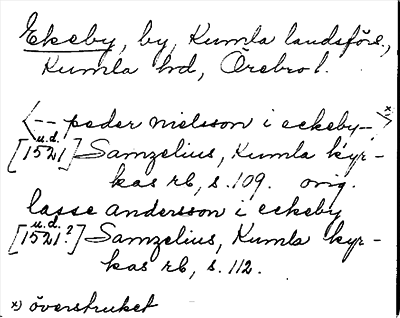 Ekeby, by, Kumla landsförs.,
Kumla hd, Örebro l.
<-- peder nielsson i eckeby--> x)
u.d.
[1521] Samzelius, Kumla kyr-
kas rb, s. 109. orig.
lasse andersson i eckeby
u.d.
[1521?] Samzelius, Kumla kyr-
kas rb, s. 112.
x) överstruket